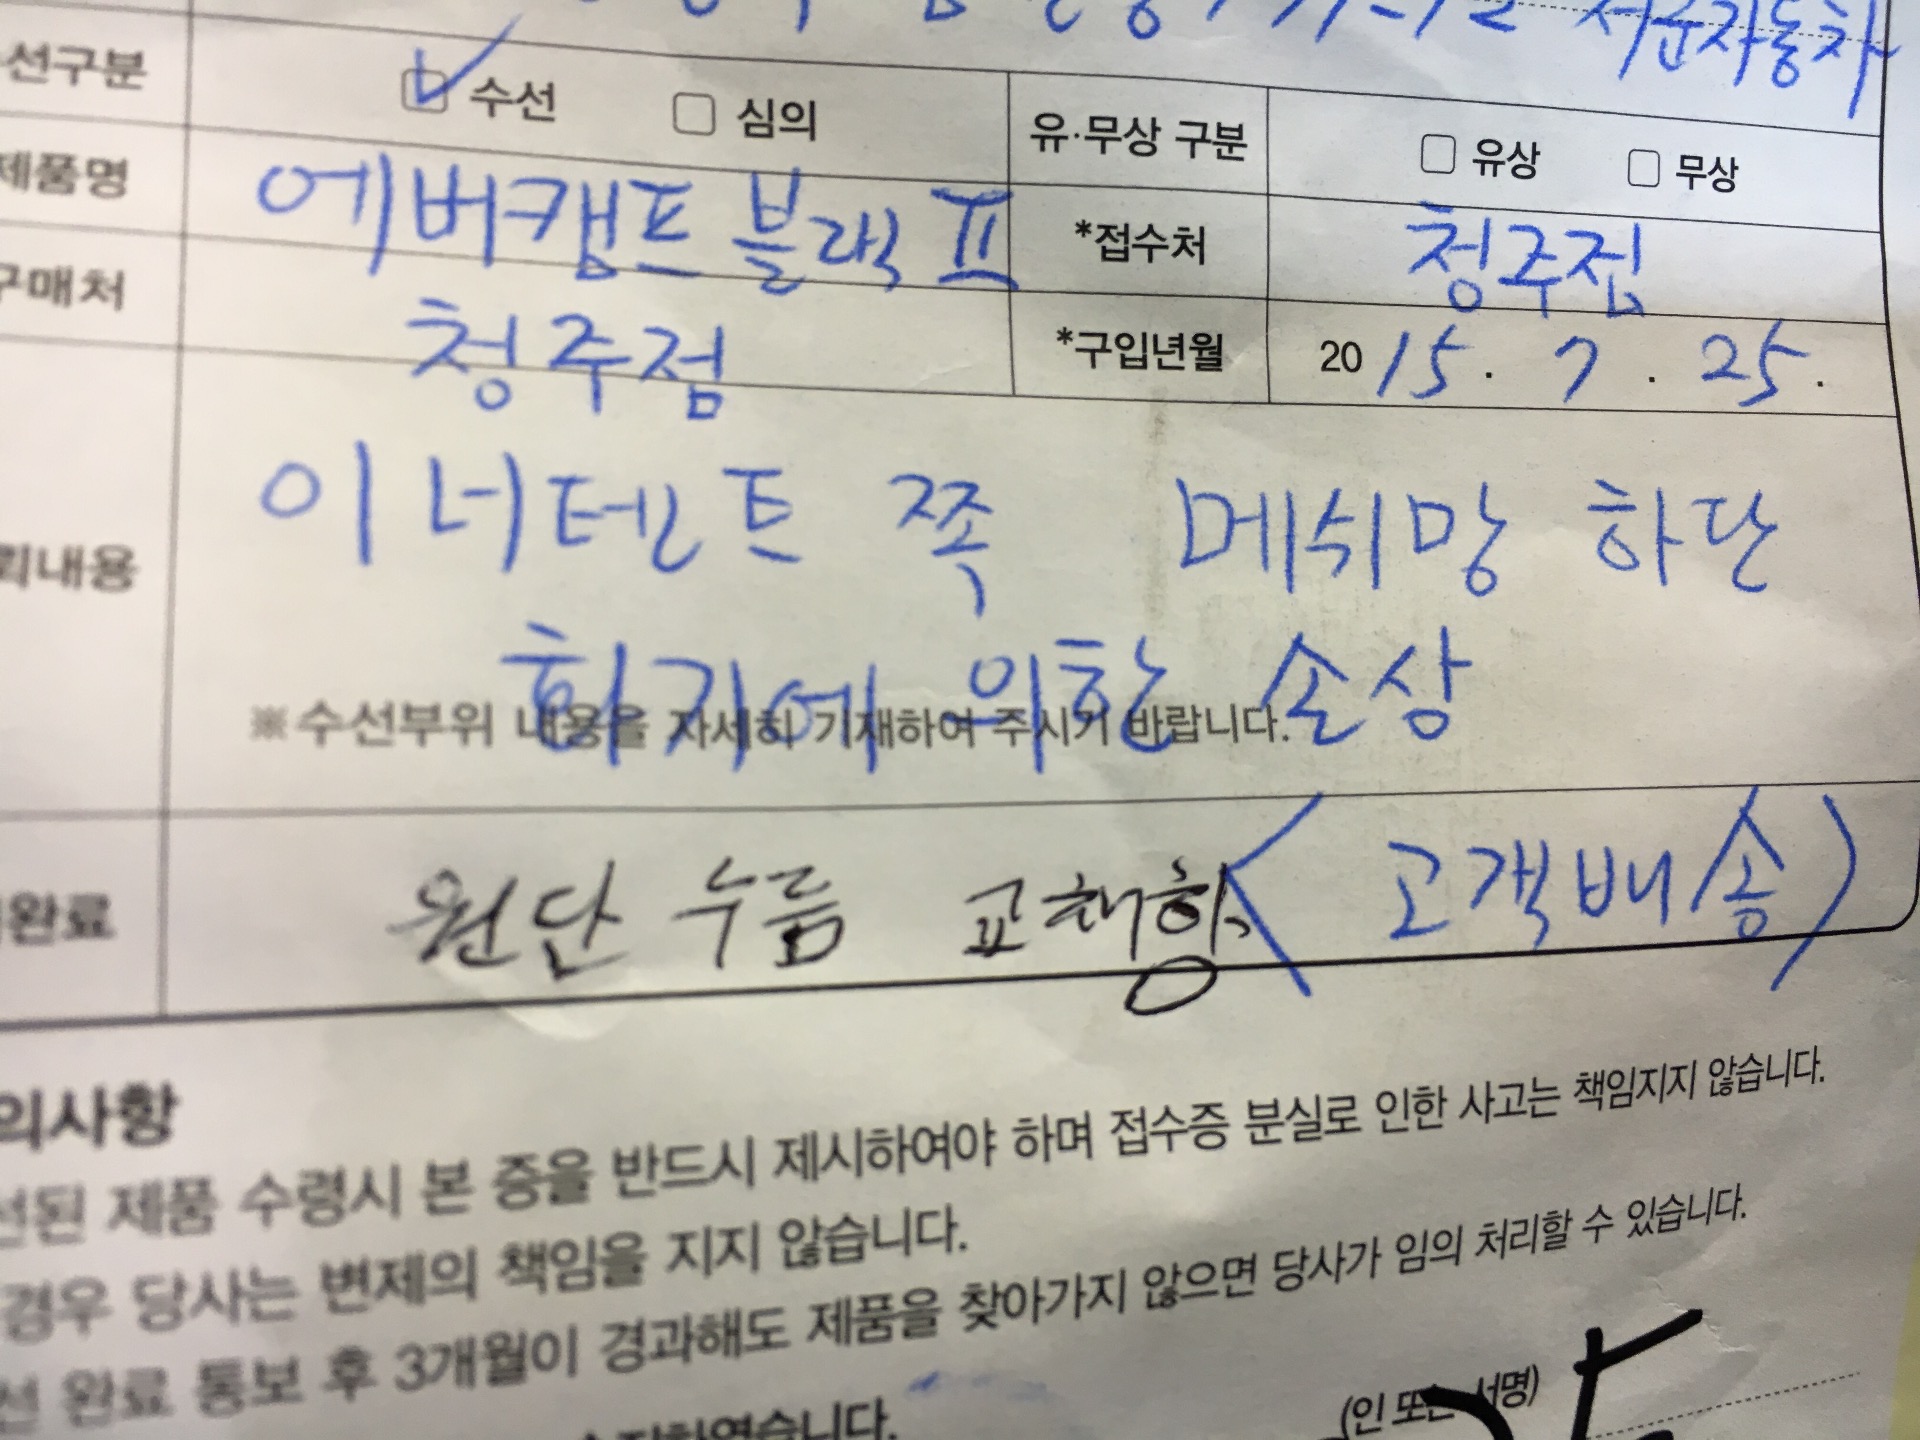 서운자동차
선구분 수선 심의 유·무상 구분 유상 무상
제품명 에버캠프 블랙 Ⅱ *접수처 청주점
구매처 청주점 *구입년월 2015. 7. 25.
뢰내용 이너텐트 쪽 메쉬망 하단
화기에 의한 손상
※수선부위 내용을 자세히 기재하여 주시기 바랍니다.
완료 원단 누름 교체함 〈고객배송〉
의사항
선된 제품 수령시 본 증을 반드시 제시하여야 하며 접수증 분실로 인한 사고는 책임지지 않습니다.
경우 당사는 변제의 책임을 지지 않습니다.
선 완료 통보 후 3개월이 경과해도 제품을 찾아가지 않으면 당사가 임의 처리할 수 있습니다.
(인 또는 서명)